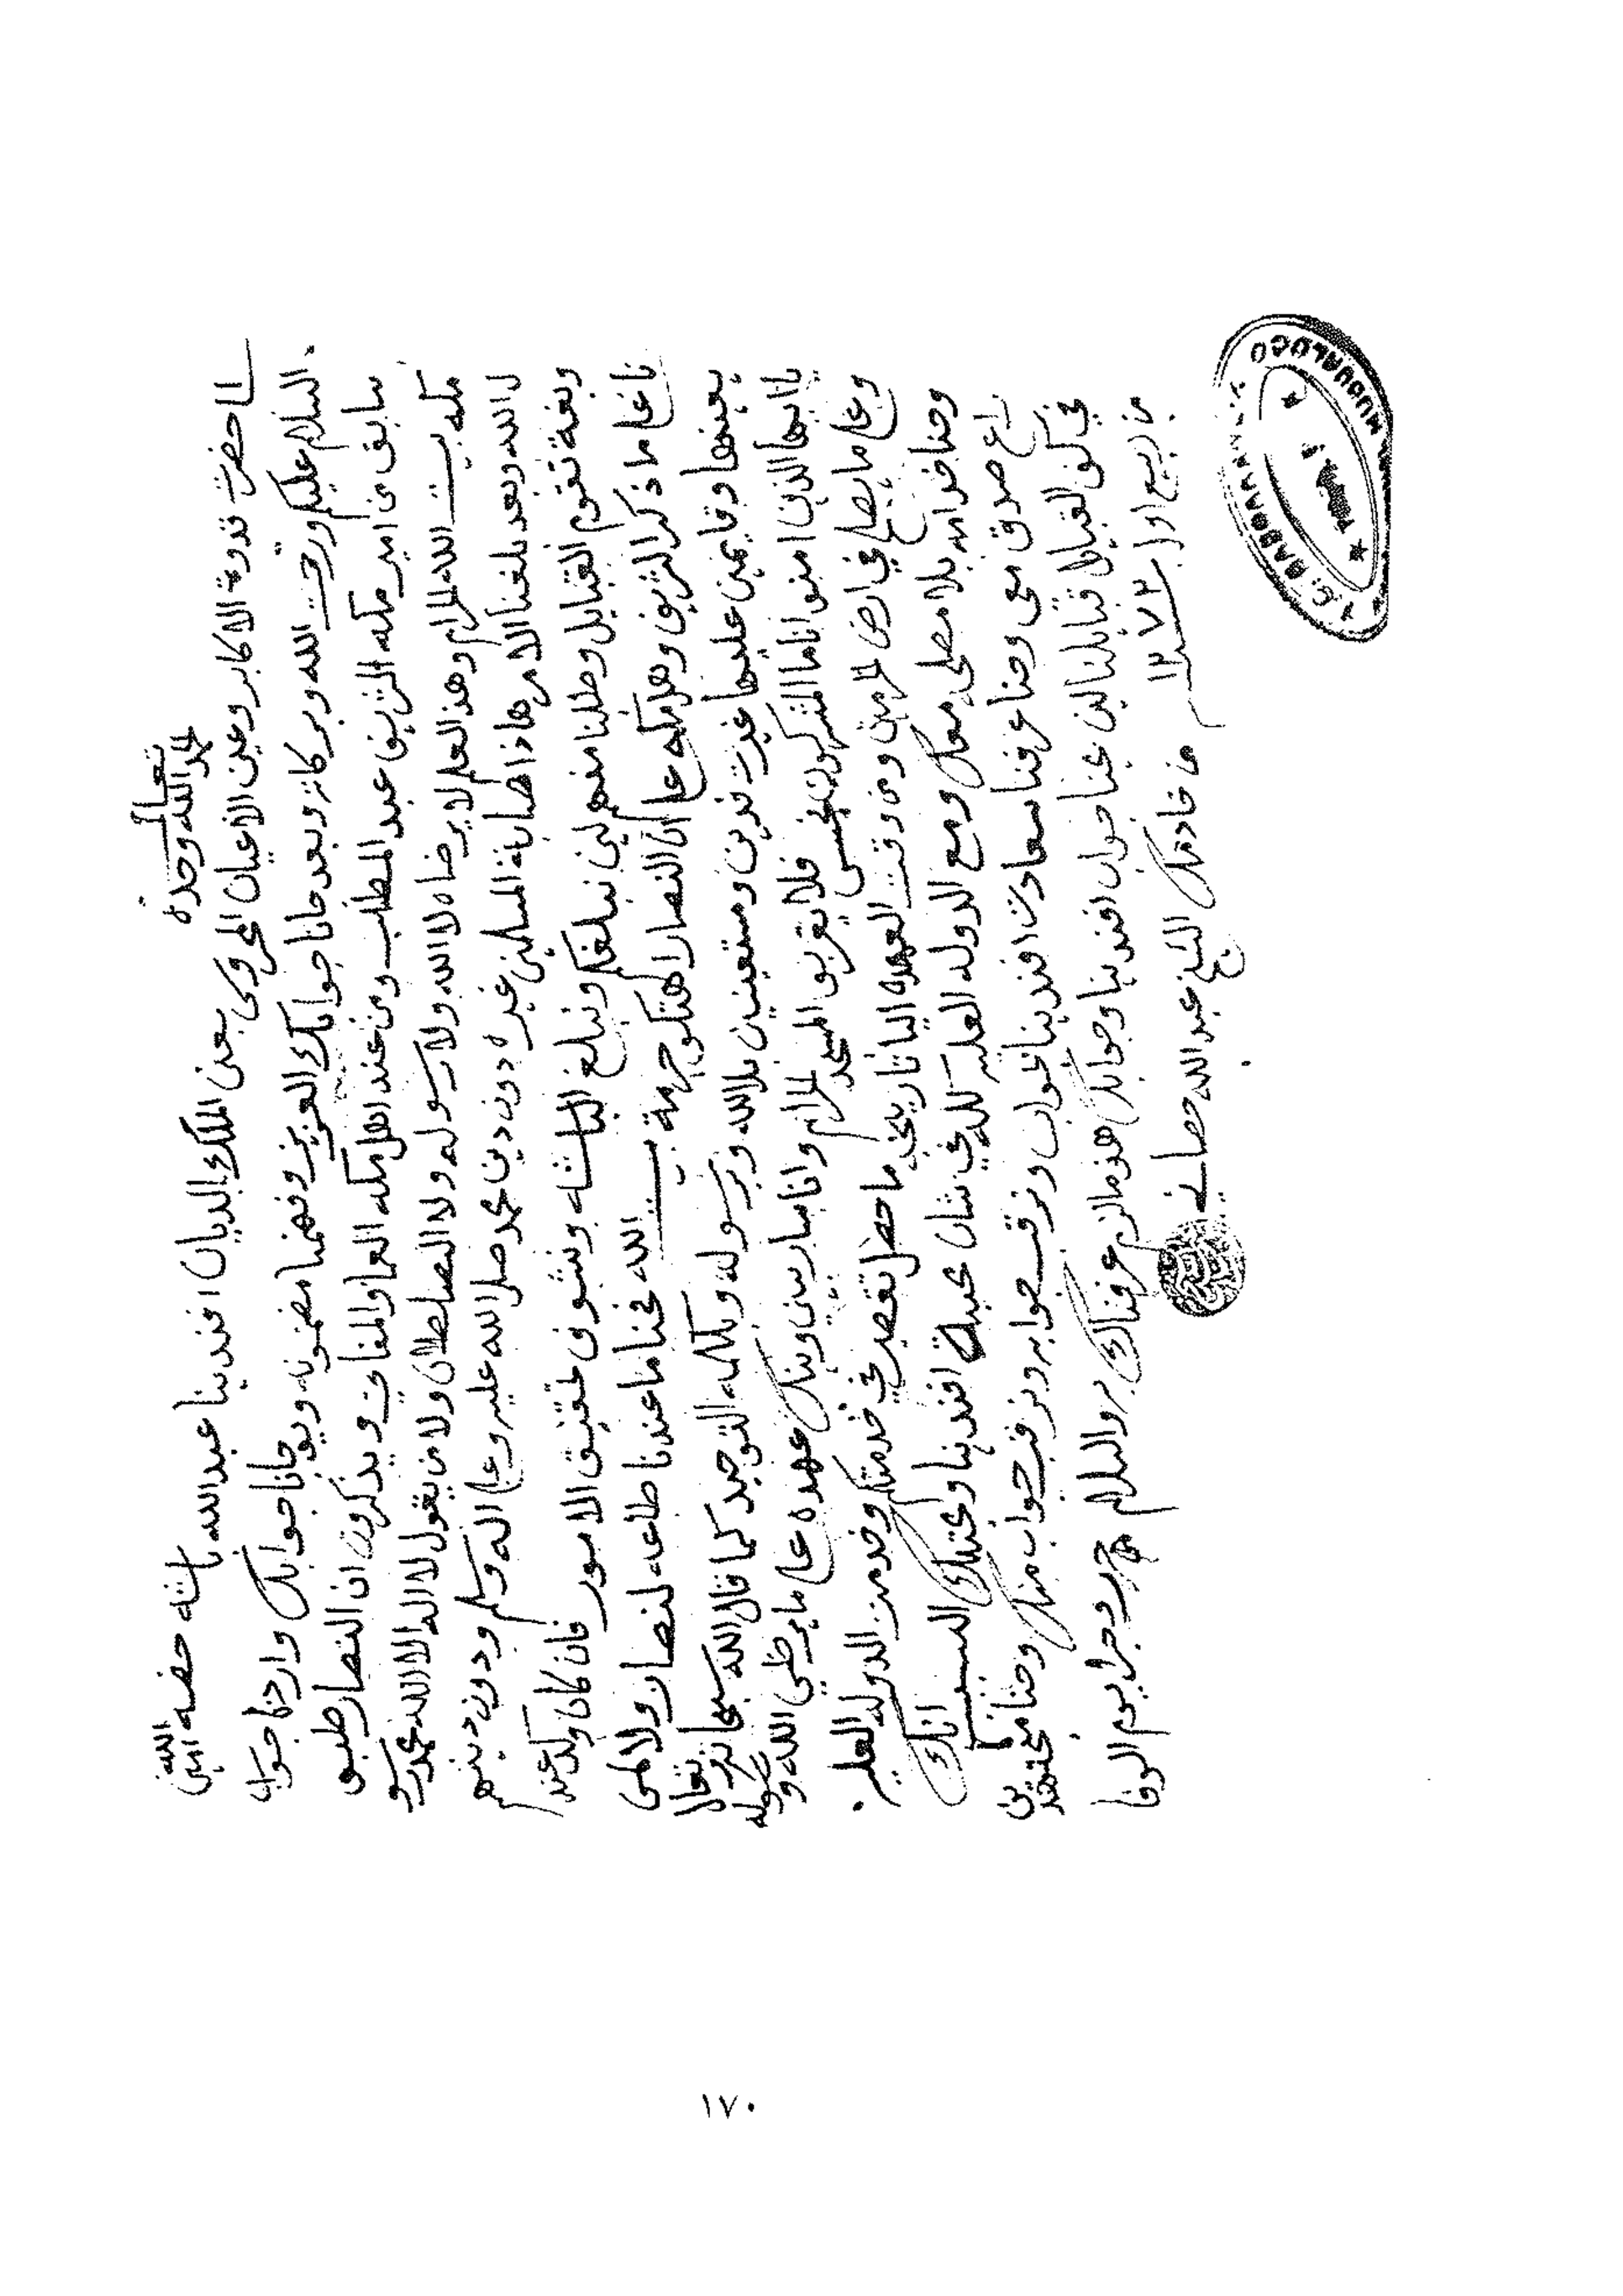 الحمد لله وحده تعالى
الى حضرت قدوة الاكابر وعين الاعيان المحروس بعين الملك الديان افندينا عبدالله باشه حفظه الله امين
السلام عليكم ورحمت الله وبركاته وبعد جانا جوابك العزيز وفهمنا مضمونه ويوم جانا جوابك وارد لنا جواب
سابق من امير مكه الشريف عبد المطلب ومن عند اهل مكه العلما والمفاتي ويذكرون ان النصار طبو
مكه بيت الله الحرام وهذ العلم لا يرضاه لا الله ولا رسوله ولا الصلطان ولا من يقول لا اله الا الله محمد رسو
ل الله وبعد بلغنا الامر هاذا صابة المسلمين غيره دون دين محمد صلى الله عليه وعلى اله وسلم ودون دينهم
وبغة تقوم القبايل وطلبنا منهم لين نبلغكم ونبلغ الباشه ونشوف تحقيق الامور فان كان وكد عند
نا على ما ذكر الشريف وهل مكه على ان النصارا هتكو حرمة بيت الله فحنا ما عندنا طاعه لنصار ولا لمن
يعينها وقايمين عليها غيرت لدين ومستعينين بلالله وبرسوله وبكلمه التوحيد كما قال الله سبحانه وتعالا
يا ايها الذين امنوا انما المشركون نجس فلا يقربو المسجد الحرام وانا صار بيني وبينك عهده على ما يرضي الله ورسوله
وعلى ما يصلح في ارض الحرمين ومن وقت العهده اليا تاريخه ما حصل تقصير في خدمتكم وخدمة الدوله العليه
وحنا خدامه بلا مصلحه معك ومع الدوله العليه كله في شان محبة افندينا ومحبتك السبب انك
راع صدق معي وحنا عرفنا سعادت افندينا بجواب ونرقب جوابه ونرقب جواب منك وحنا مجتهدين
في كف القبايل قبايلنا لين يجينا جواب افندينا وجوابك هذ مالزم عرفناك به والسلام حرر وجرا يوم الوفا
من ربيع اول سنة ١٢٧٢ من خادمك الشيخ عبد الله حصاني
١٧٠